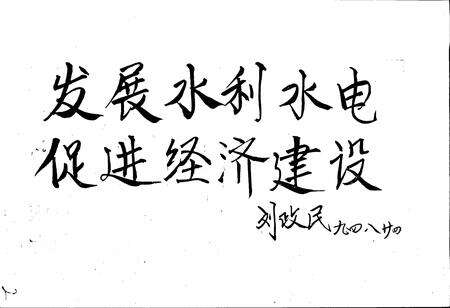 发展水利水电
促进经济建设
刘政民 九四·八·廿四